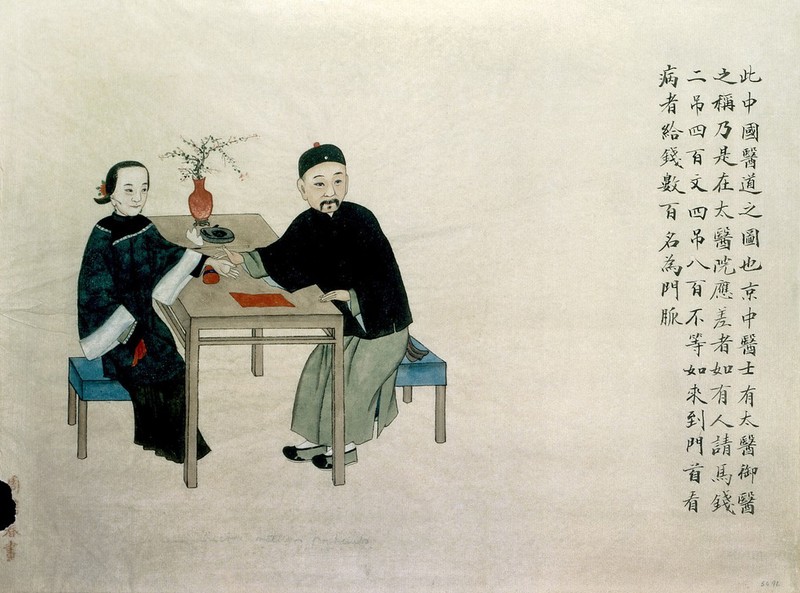 此中國醫道之圖也京中醫士有太醫御醫
之稱乃是在太醫院應差者如有人請馬錢
二吊四百文四吊八百不等如來到門首看
病者給錢數百名為門脈
周春畫